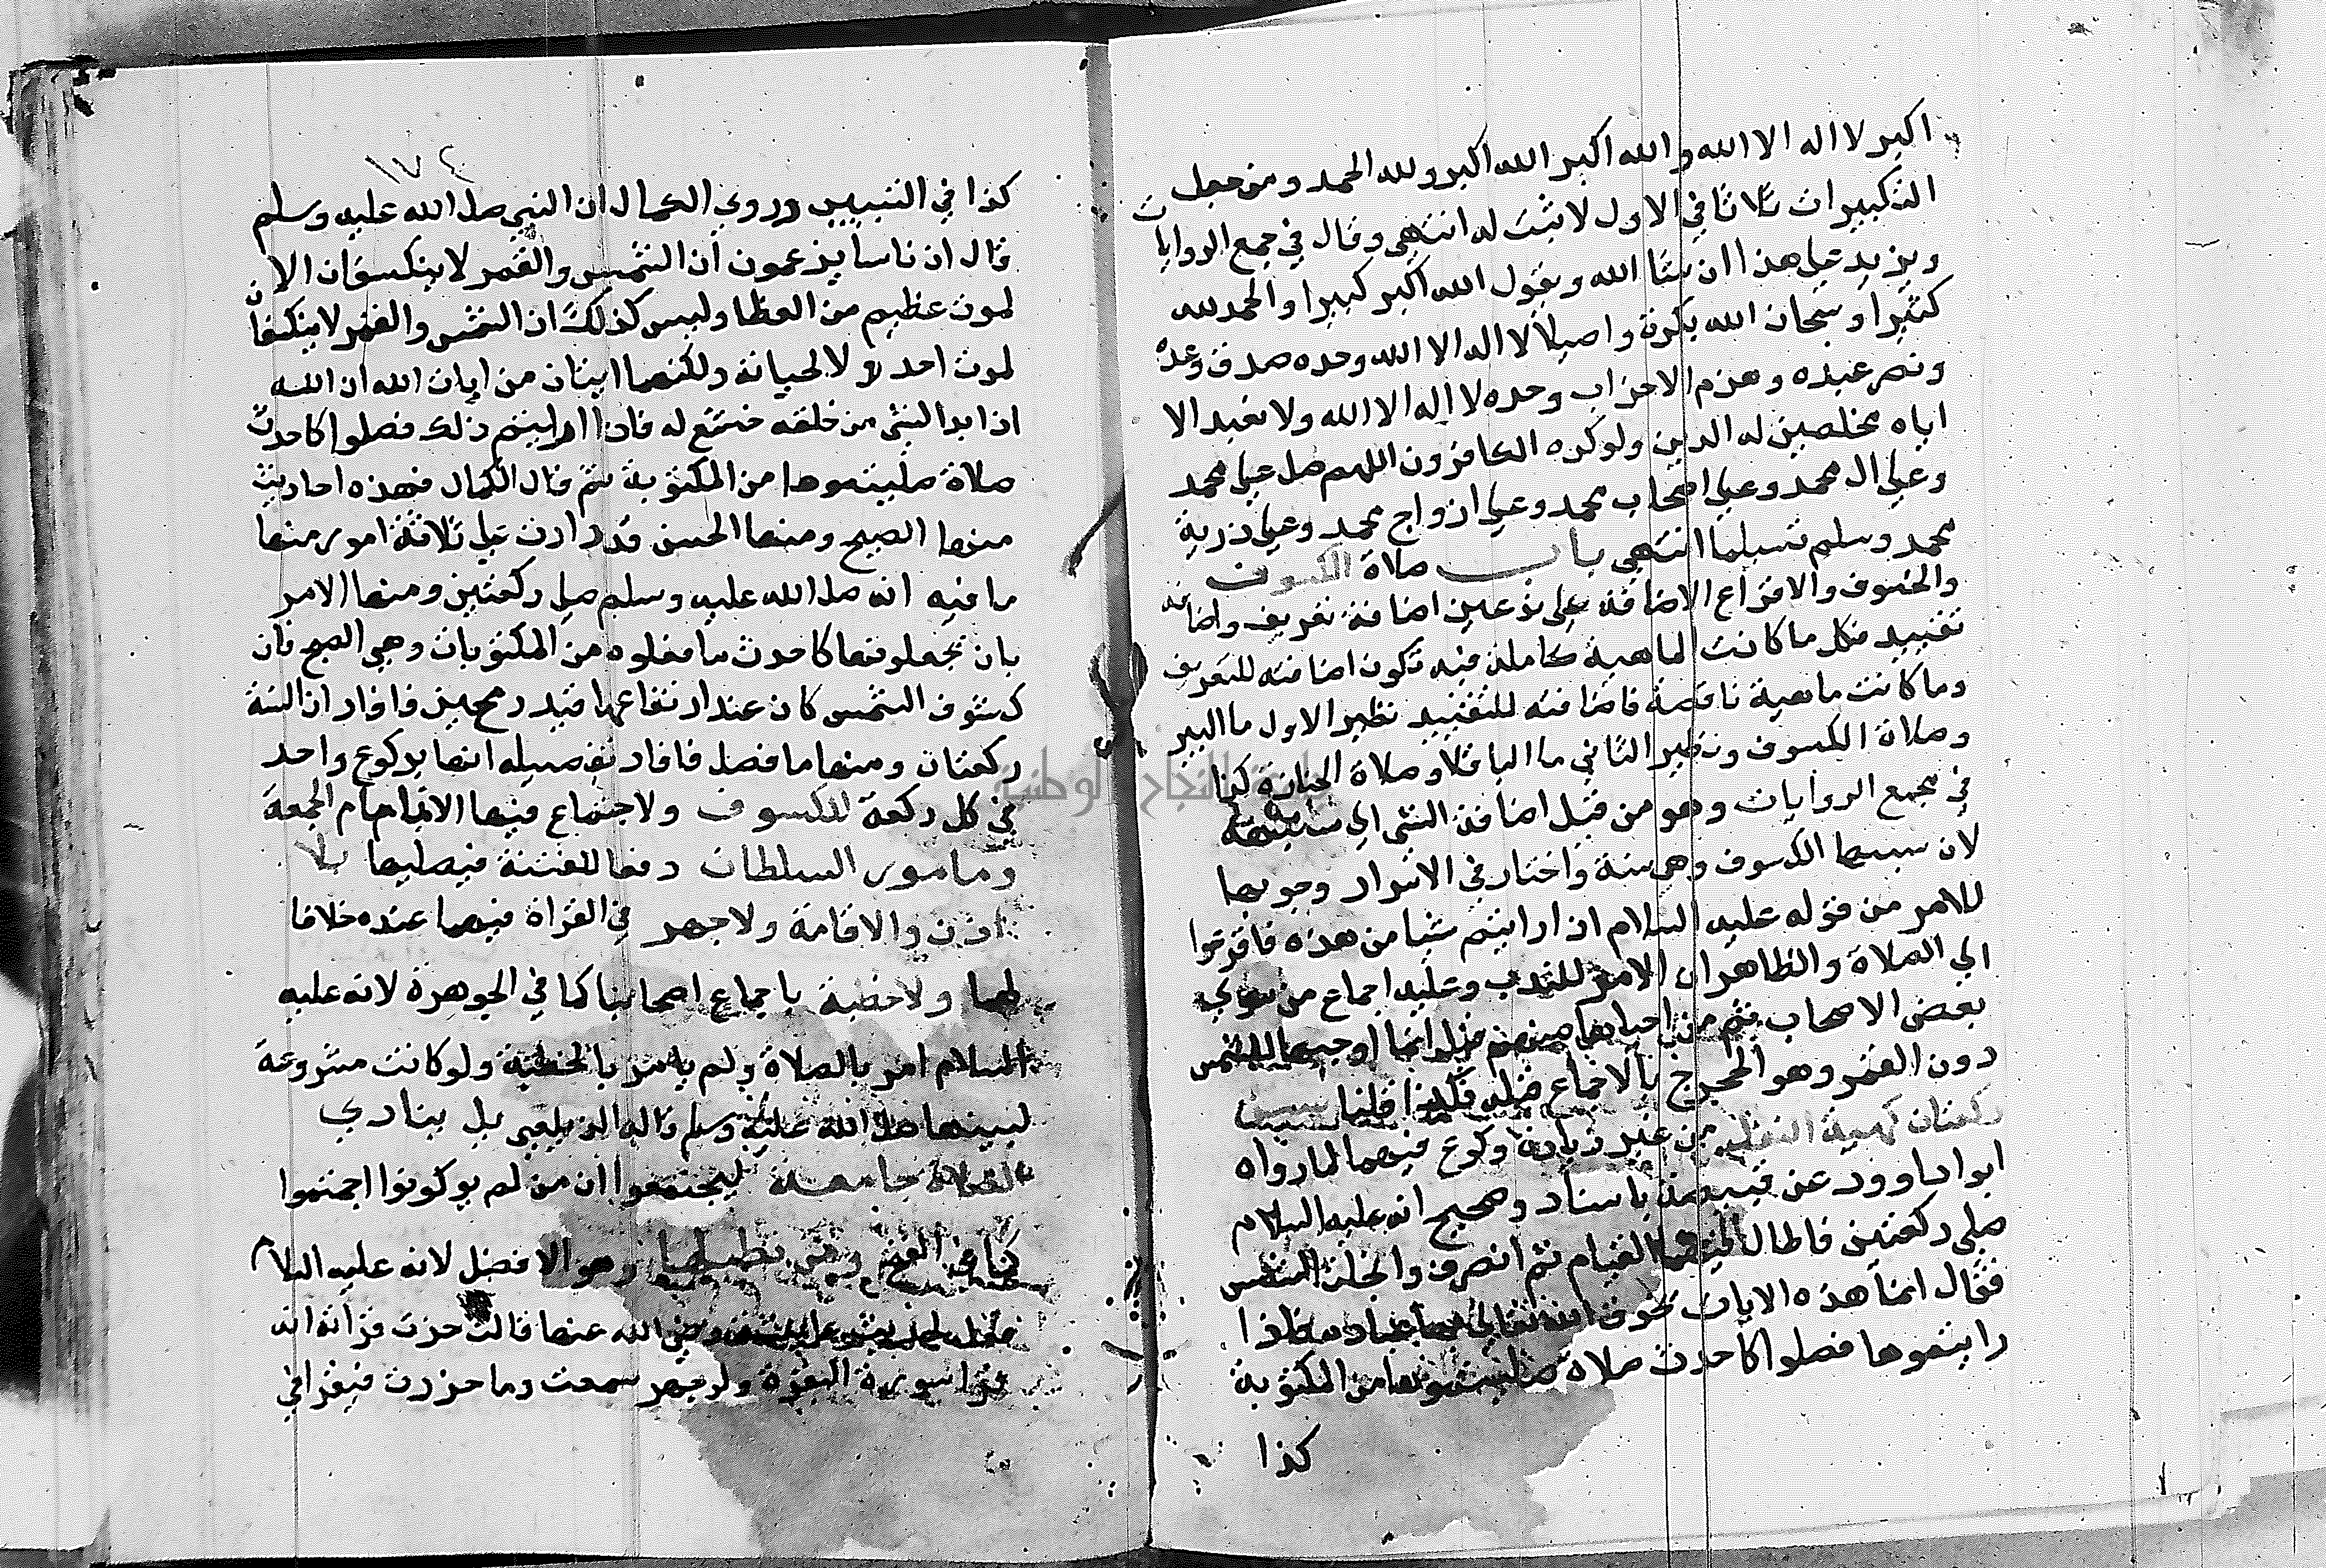 اكبر لا اله الا الله والله اكبر الله اكبر ولله الحمد ومن جعل
التكبيرات ثلاثا في الاول لا يثبت له انتهي وقال في مجمع الروايات
ويزيد علي هذا ان شا الله ويقول الله اكبر كبيرا والحمد لله
كثيرا وسبحان الله بكرة واصيلا لا اله الا الله وحده صدق وعده
ونصر عبده وهزم الاحزاب وحده لا اله الا الله ولا نعبد الا
اياه مخلصين له الدين ولو كره الكافرون اللهم صل علي محمد
وعلي ال محمد وعلي اصحاب محمد وعلي ازواج محمد وعلي ذرية
محمد وسلم تسليما انتهي باب صلاة الكسوف
والخسوف والافزاع الاضافة علي نوعين اضافة تعريف واضافة
تقييد فكل ما كانت الماهية كاملة فيه تكون اضافته للتعريف
وما كانت ماهية ناقصة فاضافته للتقييد نظير الاول ما البير
وصلاة الكسوف ونظير الثاني ما الباقلا وصلاة الجنازة كذا
في مجمع الروايات وهو من قبل اضافة الشي الي سببه
لان سببها الكسوف وهي سنة واختار في الاسرار وجوبها
للامر من قوله عليه السلام اذا رايتم شيا من هذه فافزعوا
الي الصلاة والظاهر ان الامر للندب وعليه اجماع من سوي
بعض الاصحاب ثم من اوجبها منهم قيل انما اوجبها للشمس
دون القمر وهو المحجوج بالاجماع قبله فلذا قلنا
ركعتان كهيية النفل من غير زيادة ركوع فيهما لما رواه
ابو داوود عن قبيصة باسناد صحيح انه عليه السلام
صلي ركعتين فاطال فيهما القيام ثم انصرف وانجلت الشمس
فقال انما هذه الايات يخوف الله تعالي بها عباده فاذا
رايتموها فصلوا كاحدث صلاة صليتموها من المكتوبة
كذا
١٧٢
كذا في التبيين وروي الكمال ان النبي صلي الله عليه وسلم
قال ان ناسا يزعمون ان الشمس والقمر لا ينكسفان الا
لموت عظيم من العظما وليس كذلك ان الشمس والقمر لا ينكسفان
لموت احد ولا لحياته ولكنهما ايتان من ايات الله ان الله
اذا بدا لشي من خلقه خشع له فاذا رايتم ذلك فصلوا كاحدث
صلاة صليتموها من المكتوبة ثم قال الكمال فهذه احاديث
منها الصحيح ومنها الحسن قد دارت علي ثلاثة امور منها
ما فيه انه صلي الله عليه وسلم صلي ركعتين ومنها الامر
بان يجعلوها كاحدث ما صلوه من المكتوبات وهي الصبح فان
كسوف الشمس كان عند ارتفاعها قيد رمحين فافاد ان السنة
ركعتان ومنها ما فصل فافاد تفصيله انها بركوع واحد
في كل ركعة للكسوف ولا جماع فيها الا بامام الجمعة
ومامور السلطان دفعا للفتنة فيصليها بلا
اذن والاقامة ولا جهر في القراة فيها عنده خلافا
لهما ولا خطبة باجماع اصحابنا كما في الجوهرة لانه عليه
السلام امر بالصلاة ولم يامر بالخطبة ولو كانت مشروعة
لبينها صلي الله عليه وسلم قاله الزيلعي بل ينادي
الصلاة جامعة ليجتمعوا ان من لم يكونوا اجتمعوا
كما في الفتح وسن تطويلها وهو الافضل لانه عليه السلام
رضي الله عنها قالت حزرت قراته انه
قرا سورة البقرة ولو جهر سمعت وما حزرت فيقرا في